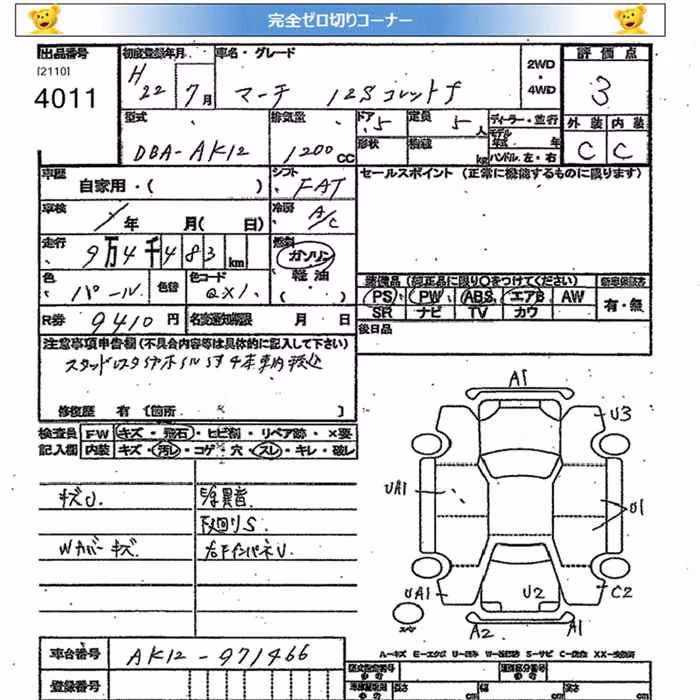 完全ゼロ切りコーナー
出品番号
[2110]
4011
初度登録年月
H 22 7月
車名・グレード
マーチ 12S コレットf
2WD・4WD
評価点
3
外装 内装
C C
型式
DBA-AK12
排気量
1200cc
ドア 5
定員 5人
形状
積載 kg
ディーラー・並行
モデル年式 年
ハンドル 左・右
車歴
自家用・( )
シフト
FAT
セールスポイント (正常に機能するものに限ります)
車検
年 月( 日)
冷房
A/C
走行
9万4千483km
燃料
ガソリン
軽油
・( )・
色
パール
色替
色コード
QX1
装備品(御正品に限り○をつけてください)
PS PW ABS エアB AW
SR ナビ TV カワ
新車保証書
有・無
R券 9410円
名変通知期限 月 日
後日品
注意事項申告欄(不具合内容等は具体的に記入して下さい)
修復歴 有 〔箇所 〕
検査員記入欄
FW キズ・飛石・ヒビ割・リペア跡・×要
内装 キズ・汚レ・コゲ・穴・スレ・キレ・破レ
キズU
異音
下回りS
Wカバーキズ
右FインパネU
A1
U3
UA1
U1
UA1
U2
C2
スペア
A2
A1
A-キズ E-エクボ U-凹み W-波 S-サビ C-腐食 XX-交換済
車台番号
AK12-971466
登録番号
長さ cm
幅 cm
高さ cm